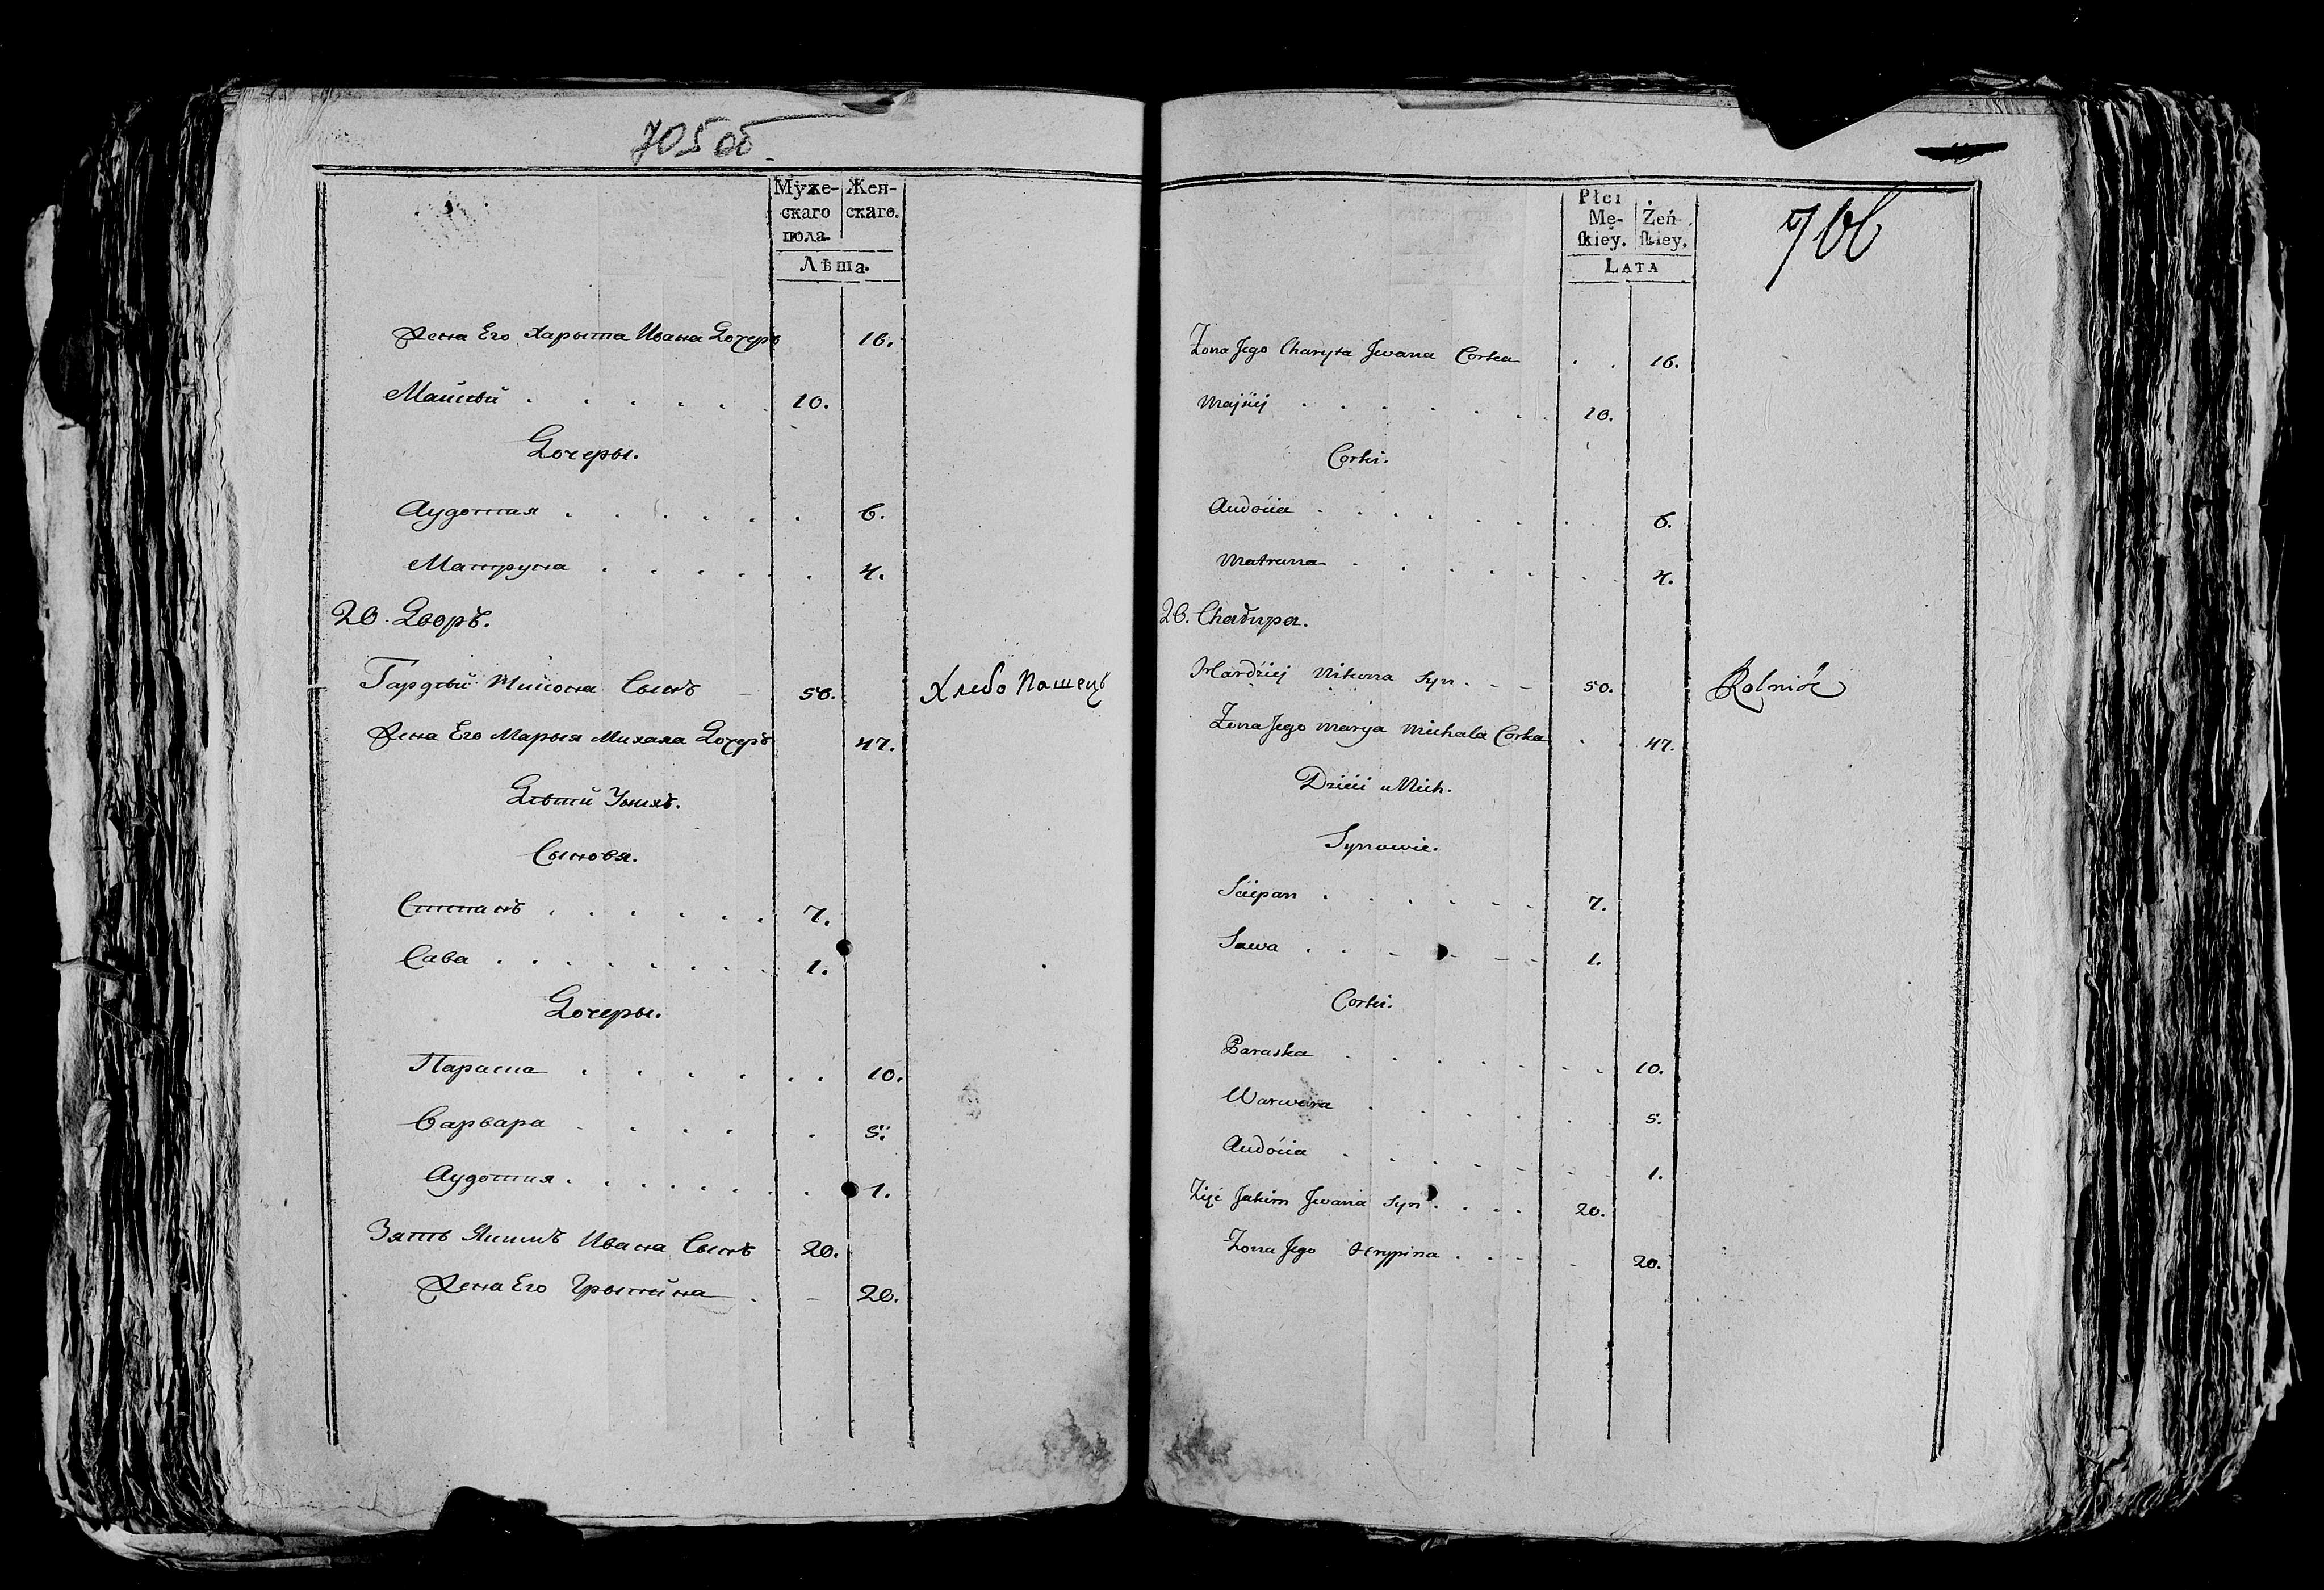 705 об
Муже- Жен-
скаго скаго.
пола.
Лѣта.
Жена Его Харыта Ивана Дочеръ 16.
Майсѣй . . . . . . 10.
Дочеры.
Аудотия . . . . . . 6.
Матруна . . . . . . 4.
20. Дворъ.
Гардѣй Никона Сынъ - 50. Хлебо Пашецъ
Жена Его Марыя Михала Дочеръ 47.
Дѣти Унихъ.
Сыновя.
Степанъ . . . . . . 7.
Сава . . . . . . . . 1.
Дочеры.
Параска . . . . . . 10.
Варвара . . . . . 5.
Аудотия . . . . . . . 1.
Зять Якимъ Ивана Сынъ 20.
Жена Его Грыпина . - 20.
706
Płci
Mę- Żeń-
ſkiey. ſkiey.
LATA
Żona Jego Charyta Jwana Corka . . 16.
Majsiej . . . . . . . 10.
Corki.
Audocia . . . . . . . . 6.
Matruna . . . . . . . . 4.
20. Chałupa.
Hardziej Nikona Syn . . - 50. Rolnik
Żona Jego Marya Michała Corka . . 47.
Dzieci u Nich.
Synowie.
Sciepan . . . . . . 7.
Sawa . . - . - - 1.
Corki.
Paraska . . . . . . . 10.
Warwara . . . . . . 5.
Audocia . . . . . - - . 1.
Zięć Jakim Jwana Syn . . . . 20.
Żona Jego Hrypina . . - - 20.